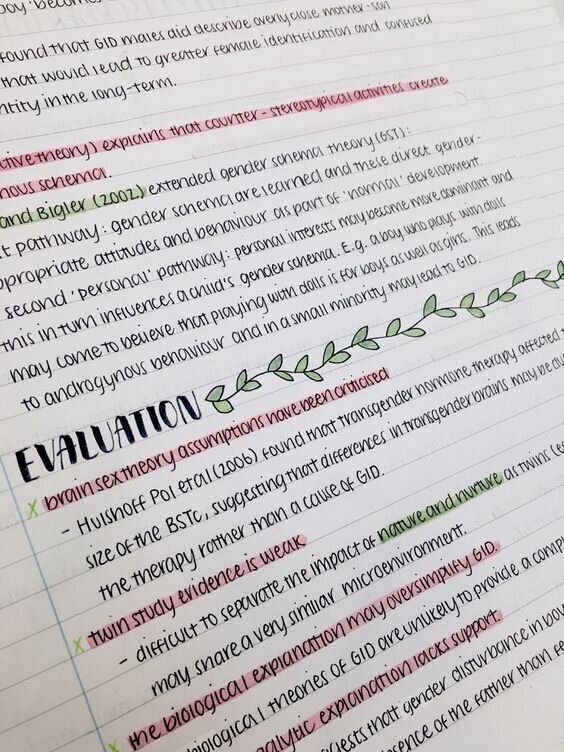 found that GID males aid describe overly close mother-son
that would lead to greater female identification and confused
ntity in the long-term.
ctive theory) explains that counter-stereotypical activities create
nous schema.
and Bigler (2002) extended gender schema theory (GST):
t pathway: gender schema are learned and these direct gender-
ppropriate attitudes and behaviour as part of 'normal' development.
second 'personal' pathway: personal interests may become more dominant and
this in turn influences a child's gender schema. E.g. a boy who plays with dolls
may come to believe that playing with dolls is for boys as well as girls. This leads
to androgynous behaviour and in a small minority may lead to GID.
EVALUATION
x brain sex theory assumptions have been criticised
- Hulshoff Pol et al (2006) found that transgender hormone therapy affected t
size of the BSTc, suggesting that differences in transgender brains may be du
the therapy rather than a cause of GID.
x twin study evidence is weak
- difficult to separate the impact of nature and nurture as twins (es
may share a very similar microenvironment.
x the biological explanation may oversimplify GID.
biological theories of GID are unlikely to provide a comp
alytic explanation lacks support.
ests that gender disturbance in boy
ence of the father than fe